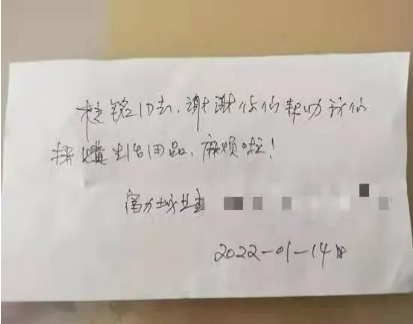 谢谢你们帮助我们
采购生活用品，麻烦啦！
富力城业主
2022-01-14日